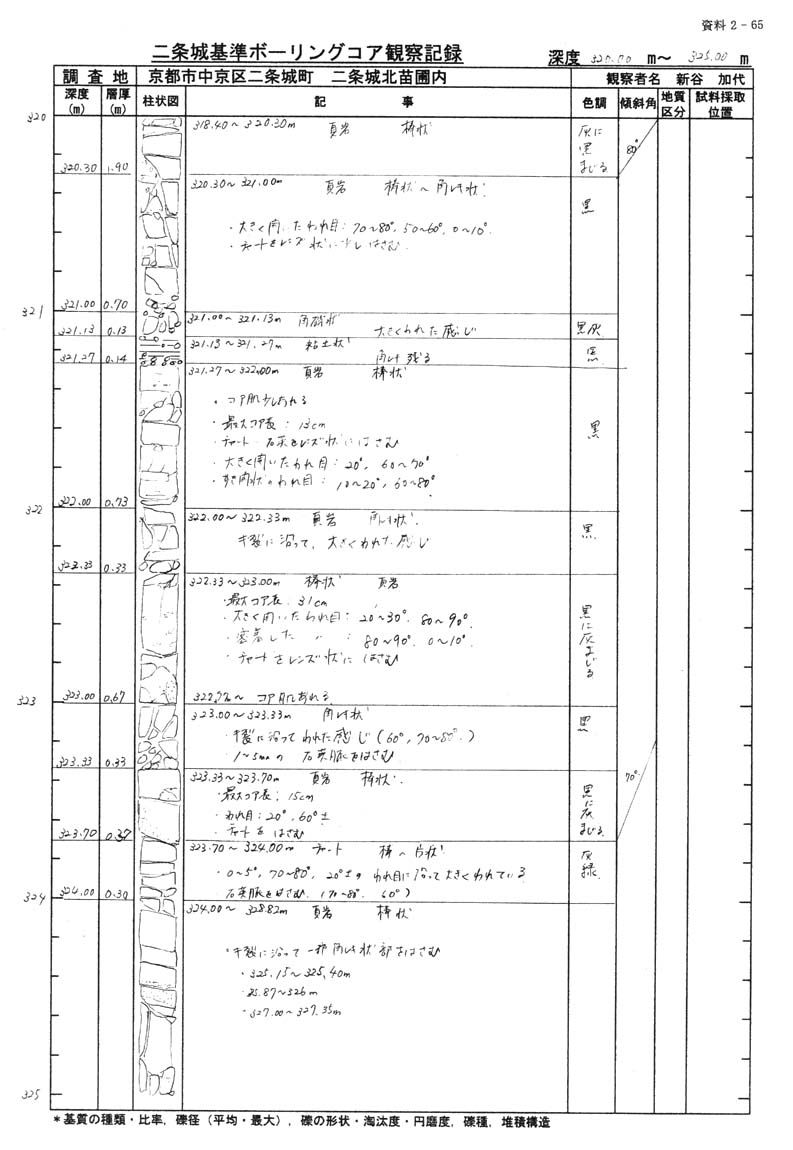 資料2-65
二条城基準ボーリングコア観察記録
深度 320.00 m～ 325.00 m
調査地 京都市中京区二条城町 二条城北苗圃内 観察者名 新谷 加代
深度(m) 層厚(m) 柱状図 記事 色調 傾斜角 地質区分 試料採取位置
320
318.40～320.30m 頁岩 棒状
灰に黒まじる
80°
320.30 1.90
320.30～321.00m 頁岩 棒状～角レキ状
黒
・大きく開いたわれ目:70～80°, 50～60°, 0～10°
・チャートをレンズ状に少しはさむ
321
321.00 0.70
321.00～321.13m 角礫状
大きくわれた感じ
黒灰
321.13 0.13
321.13～321.27m 粘土状
角レキ残る
黒
321.27 0.14
321.27～322.00m 頁岩 棒状
・コア肌少しあれる
・最大コア長:13cm
・チャート・石英をレンズ状にはさむ
黒
・大きく開いたわれ目:20°, 60～70°
われ目:10～20°, 60～80°
322
322.00 0.73
322.00～322.33m 頁岩 角レキ状
キ裂に沿って,大きくわれた感じ
黒
322.33 0.33
322.33～323.00m 棒状 頁岩
・最大コア長 31cm
・大きく開いたわれ目:20～30°, 80～90°
・密着した 〃 : 80～90°, 0～10°
・チャートをレンズ状にはさむ
黒に灰まじる
323
323.00 0.67
コア肌あれる
323.00～323.33m 角レキ状
黒
・キ裂に沿ってわれた感じ(60°, 70～80°)
・1～5mmの石英脈をはさむ
323.33 0.33
323.33～323.70m 頁岩 棒状
・最大コア長:15cm
・われ目:20°, 60°±
・チャートをはさむ
黒に灰まじる
70°
323.70 0.37
323.70～324.00m チャート 棒～片状
灰緑
・0～5°, 70～80°, 20°±のわれ目に沿って大きくわれている
石英脈をはさむ(70～80°, 60°)
324
324.00 0.30
324.00～328.82m 頁岩 棒状
・キ裂に沿って一部角レキ状部をはさむ
・325.15～325.40m
・25.87～326m
・327.00～327.35m
325
*基質の種類・比率,礫径(平均・最大),礫の形状・淘汰度・円磨度,礫種,堆積構造